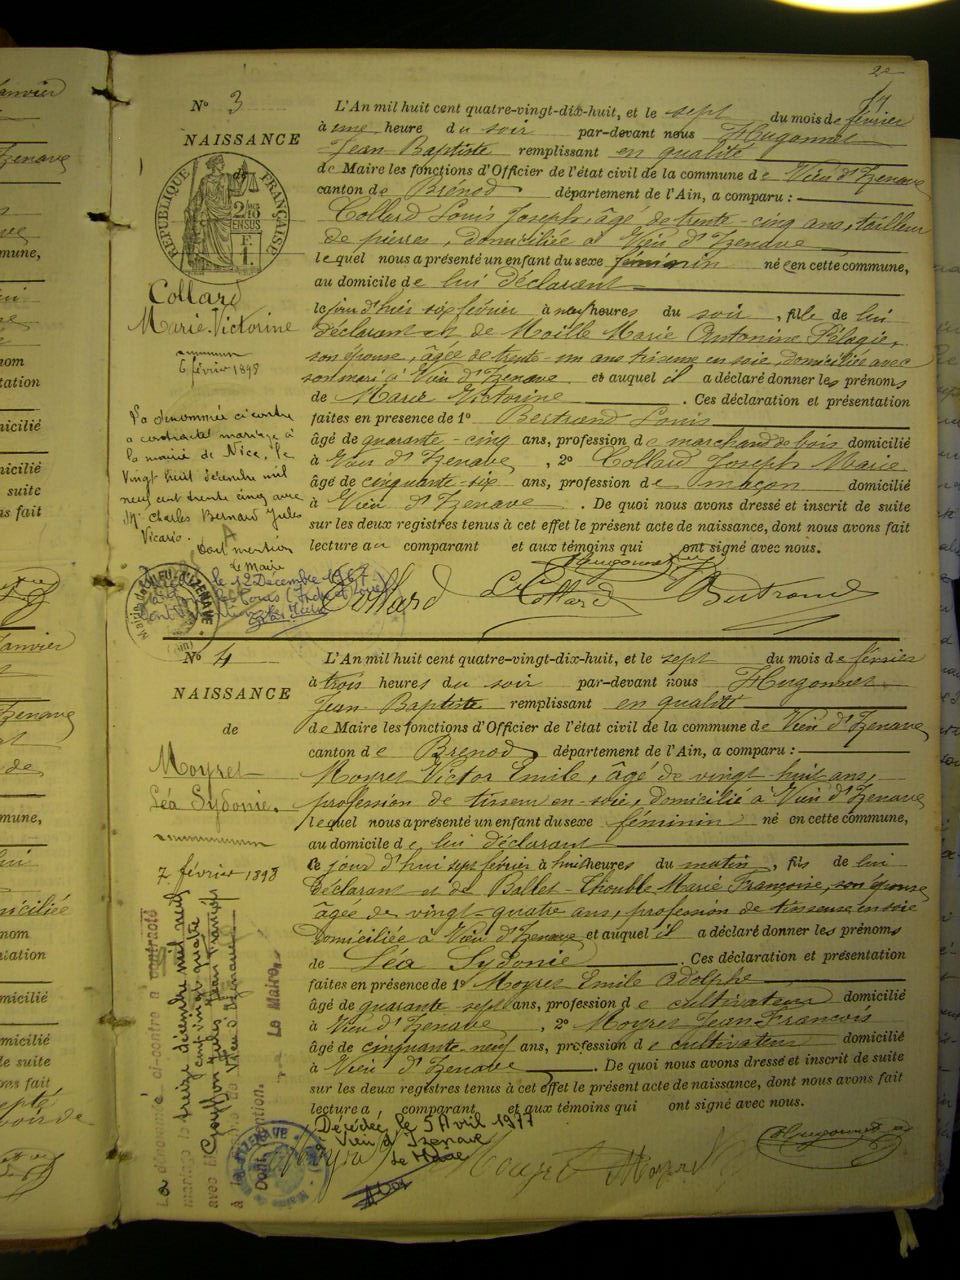 N° 3
NAISSANCE
de
RÉPUBLIQUE FRANÇAISE
Collard
Marie-Victorine
6 février 1898
La dénommée ci-contre
a contracté mariage à
la mairie de Nice, le
vingt huit décembre mil
neuf cent trente cinq avec
Mr Charles Bernard Jules
Vicario.
Dont mention
Le Maire
le 12 Décembre 1967
L'An mil huit cent quatre-vingt-dix-huit, et le sept du mois de février
à une heure du soir par-devant nous Hugonnet
Jean Baptiste remplissant en qualité
de Maire les fonctions d'Officier de l'état civil de la commune de Vieu d'Izenave
canton de Brénod département de l'Ain, a comparu :
Collard Louis Joseph, âgé de trente-cinq ans, tailleur
de pierres, domiciliée à Vieu d'Izenave
lequel nous a présenté un enfant du sexe féminin né en cette commune,
au domicile de lui déclarant
le jour d'hier six février à neuf heures du soir, file de lui
déclarant et de Maille Marie Antonine Pélagie,
son épouse, âgée de trente-un ans tisseuse en soie, domiciliée avec
son mari à Vieu d'Izenave et auquel il a déclaré donner les prénoms
de Marie Victorine. Ces déclaration et présentation
faites en présence de 1° Bertrand Louis
âgé de quarante-cinq ans, profession de marchand de bois domicilié
à Vieu d'Izenave, 2° Collard Joseph Marie
âgé de cinquante-six ans, profession de maçon domicilié
à Vieu d'Izenave. De quoi nous avons dressé et inscrit de suite
sur les deux registres tenus à cet effet le présent acte de naissance, dont nous avons fait
lecture au comparant et aux témoins qui ont signé avec nous.
Hugonnet
Collard L. Collard Bertrand
N° 4
NAISSANCE
de
Moyret
Léa Sydonie.
7 février 1898
La dénommée ci-contre a contracté
mariage le treize décembre mil neuf
cent vingt quatre
avec Goyffon Jules Jean François
à Vieu d'Izenave
Dont mention. Le Maire,
L'An mil huit cent quatre-vingt-dix-huit, et le sept du mois de février
à trois heures du soir par-devant nous Hugonnet
Jean Baptiste remplissant en qualité
de Maire les fonctions d'Officier de l'état civil de la commune de Vieu d'Izenave
canton de Brenod département de l'Ain, a comparu :
Moyret Victor Emile, âgé de vingt-huit ans,
profession de tisseur en-soie, domicilié à Vieu d'Izenave
lequel nous a présenté un enfant du sexe féminin né en cette commune,
au domicile de lui déclarant
ce jour d'hui sept février à huit heures du matin, fils de lui
déclarant et de Ballet-Thouble Marie Françoise, son épouse
âgée de vingt-quatre ans, profession de tisseuse en soie
domiciliée à Vieu d'Izenave et auquel il a déclaré donner les prénoms
de Léa Sydonie. Ces déclaration et présentation
faites en présence de 1° Moyret Emile Adolphe
âgé de quarante sept ans, profession de cultivateur domicilié
à Vieu d'Izenave, 2° Moyret Jean-François
âgé de cinquante-neuf ans, profession de cultivateur domicilié
à Vieu d'Izenave. De quoi nous avons dressé et inscrit de suite
sur les deux registres tenus à cet effet le présent acte de naissance, dont nous avons fait
lecture a comparant et aux témoins qui ont signé avec nous.
Décédée le 5 Avril 1977
à Vieu d'Izenave
Le Maire
Moyret Hugonnet